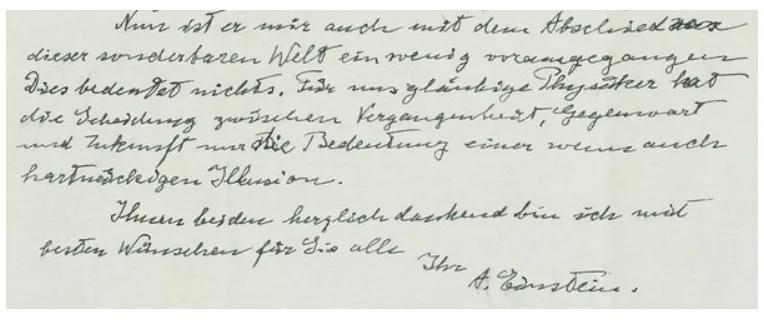 Nun ist er mir auch mit dem Abschied von
dieser sonderbaren Welt ein wenig vorausgegangen
Dies bedeutet nichts. Für uns gläubige Physiker hat
die Scheidung zwischen Vergangenheit, Gegenwart
und Zukunft nur die Bedeutung einer wenn auch
hartnäckigen Illusion.
Ihnen beiden herzlich dankend bin ich mit
besten Wünschen für Sie alle
Ihr
A. Einstein.